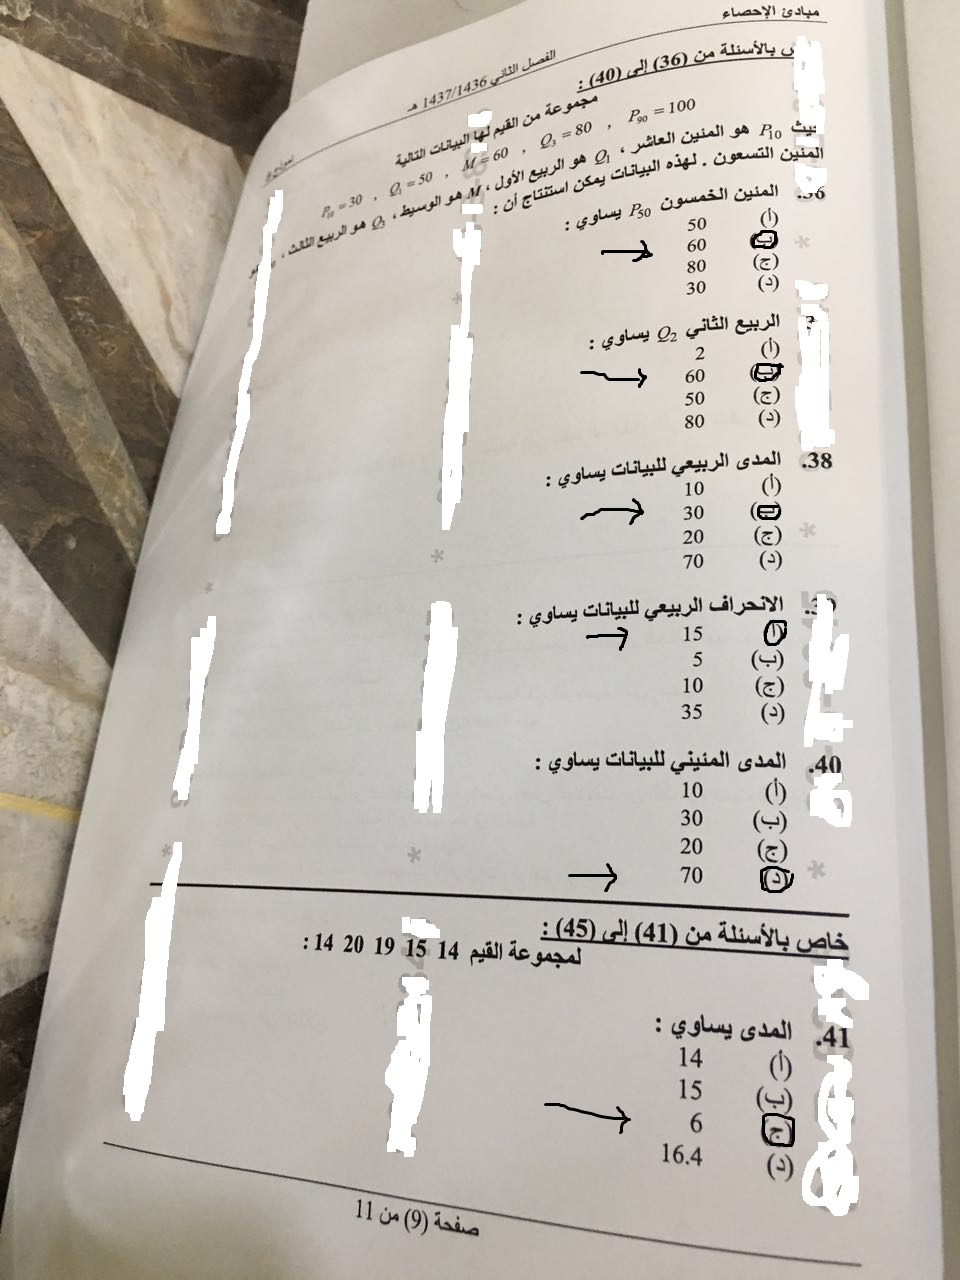 مبادئ الإحصاء
الفصل الثاني 1437/1436 هـ
بالأسئلة من (36) إلى (40) :
مجموعة من القيم لها البيانات التالية
P₁₀ = 30 , Q₁ = 50 , M = 60 , Q₃ = 80 , P₉₀ = 100
P₁₀ هو المئين العاشر ، Q₁ هو الربيع الأول ، M هو الوسيط، Q₃ هو الربيع الثالث ،
المئين التسعون . لهذه البيانات يمكن استنتاج أن :
المئين الخمسون P₅₀ يساوي :
(أ) 50
60
(ج) 80
(د) 30
الربيع الثاني Q₂ يساوي :
(أ) 2
60
(ج) 50
(د) 80
38. المدى الربيعي للبيانات يساوي :
(أ) 10
30
(ج) 20
(د) 70
الانحراف الربيعي للبيانات يساوي :
(أ) 15
(ب) 5
(ج) 10
(د) 35
40. المدى المئيني للبيانات يساوي :
(أ) 10
(ب) 30
(ج) 20
(د) 70
خاص بالأسئلة من (41) إلى (45) :
لمجموعة القيم 14 15 19 20 14 :
41. المدى يساوي :
(أ) 14
(ب) 15
(ج) 6
(د) 16.4
صفحة (9) من 11